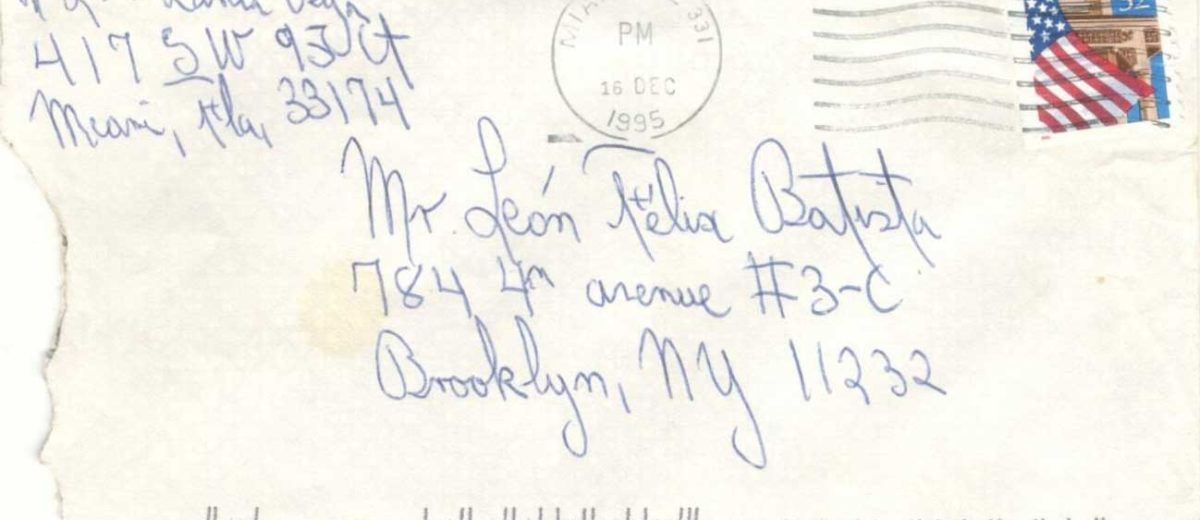 417 SW 93 Ct
Miami, Fla, 33174
MIA 331
PM
16 DEC
1995
32
Mr. León Félix Batista
784 4th avenue #3-C
Brooklyn, NY 11232